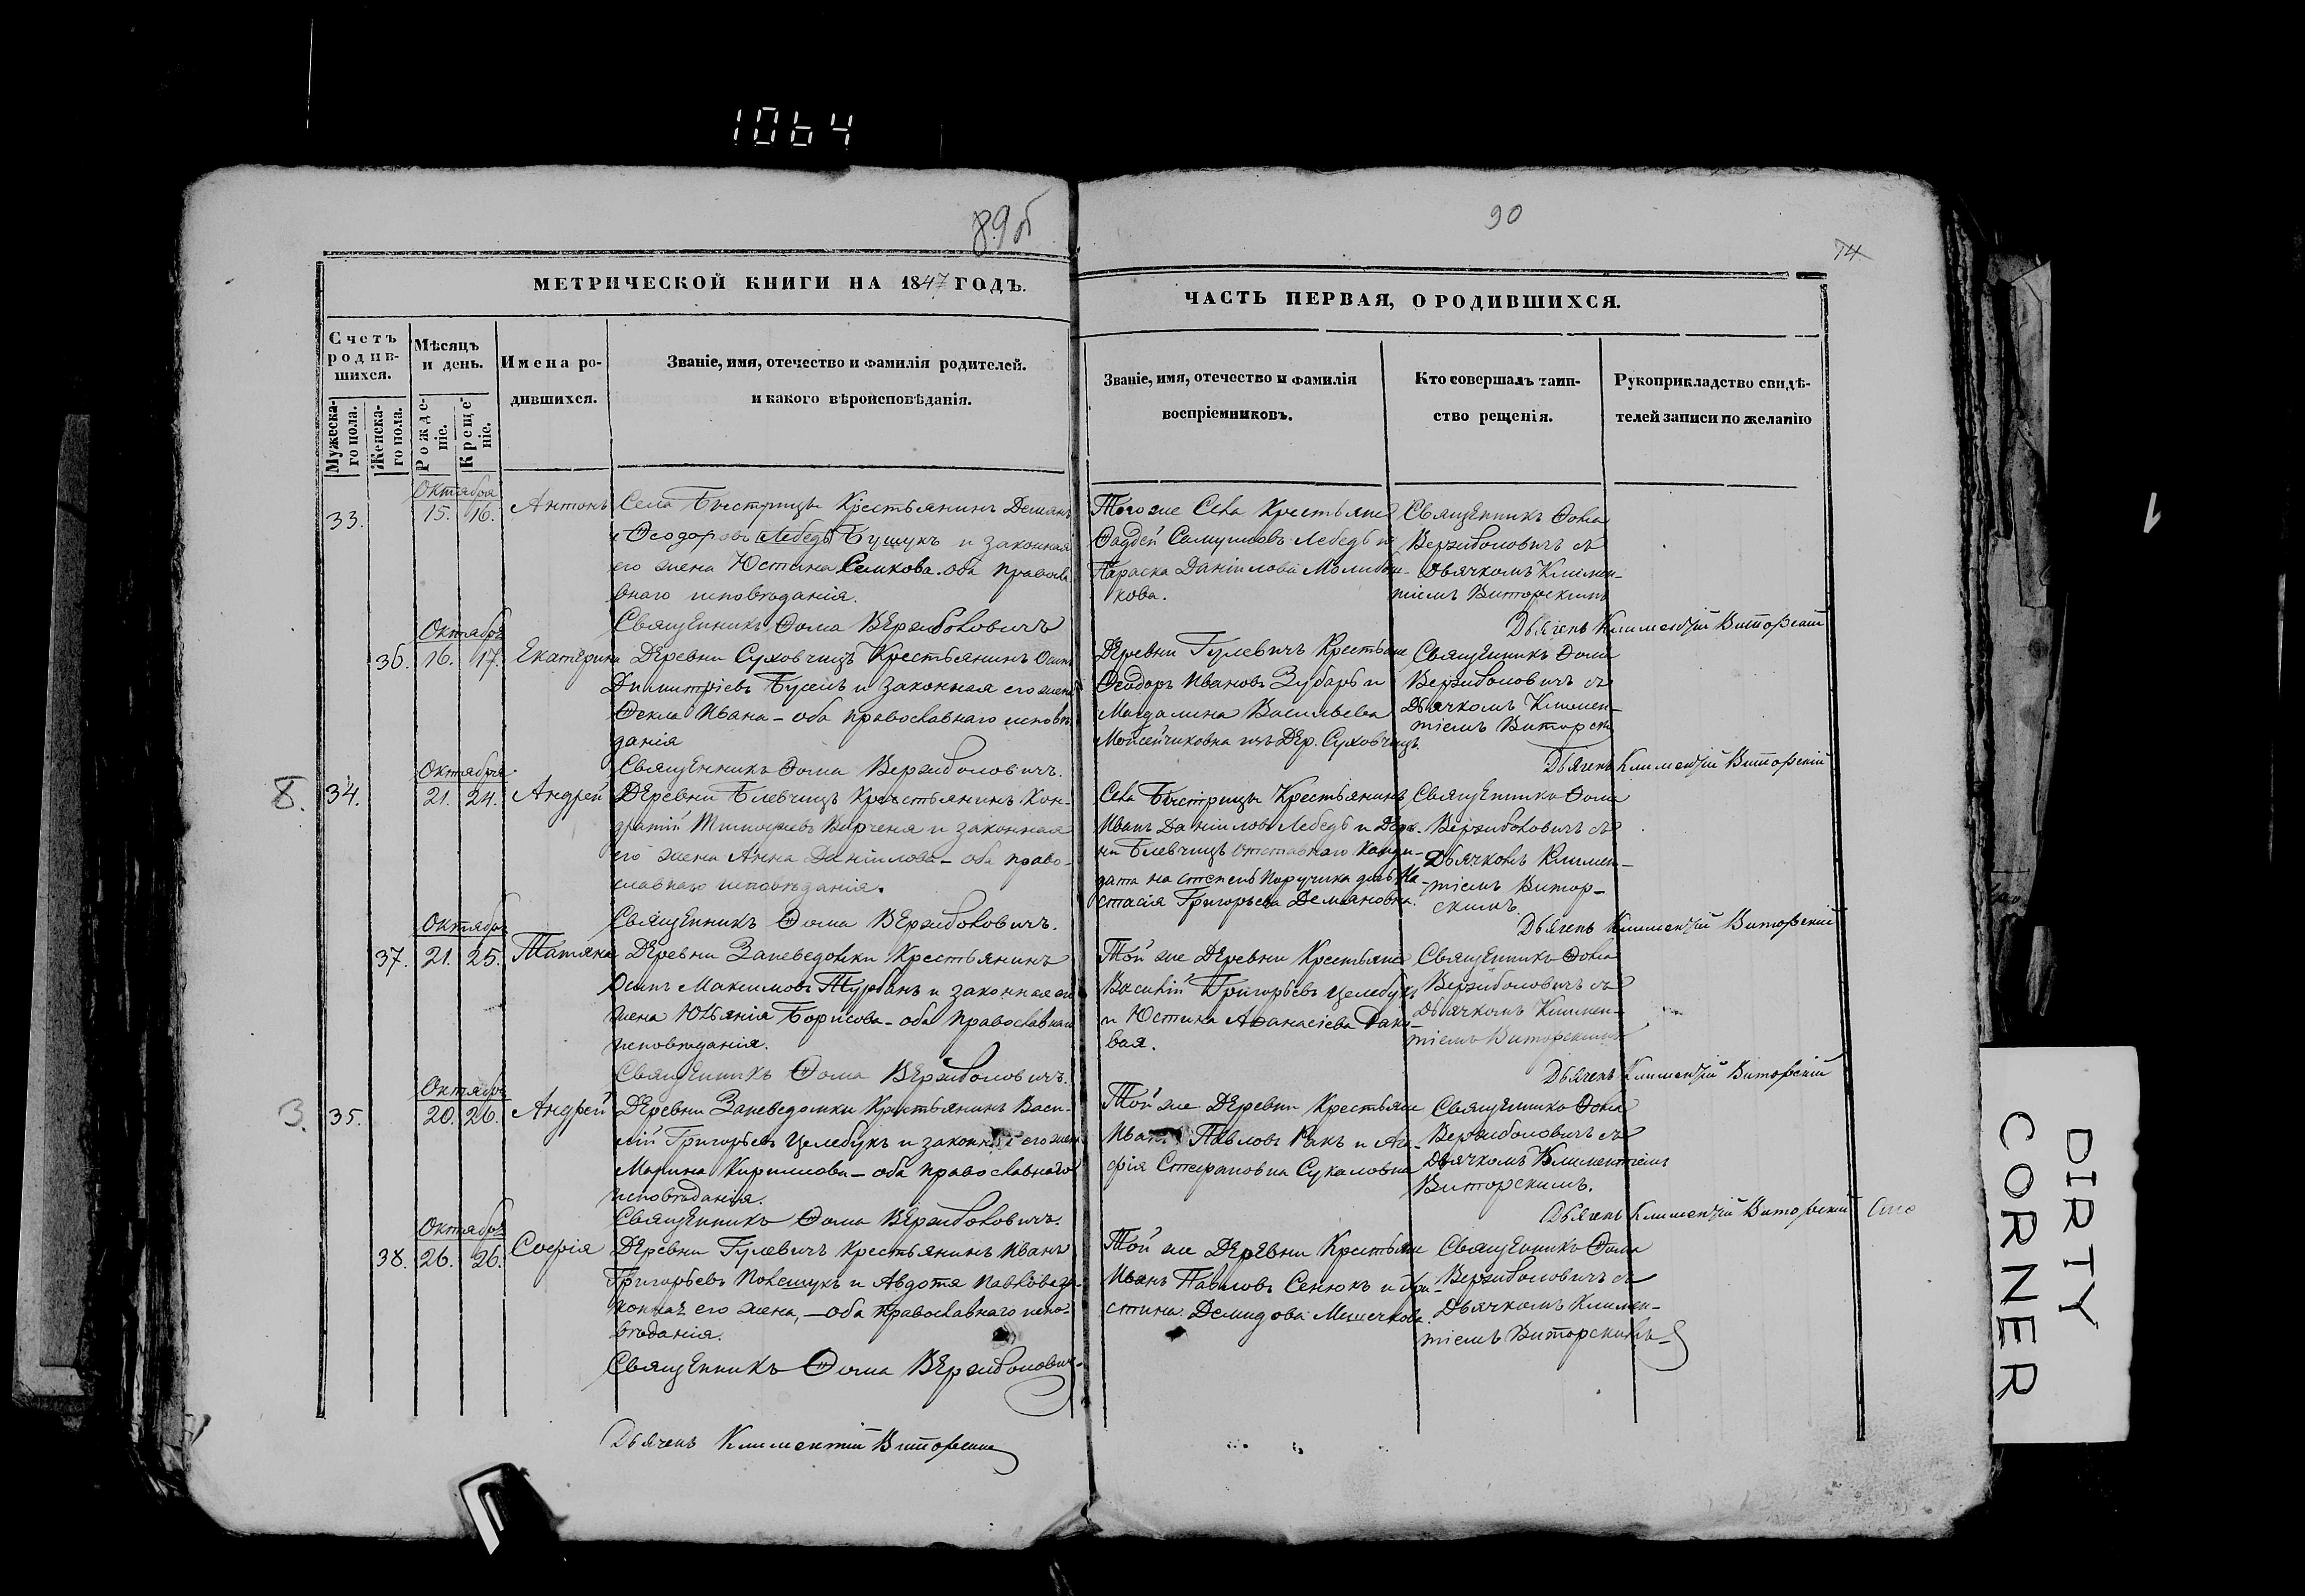 1064
89об
90
74
МЕТРИЧЕСКОЙ КНИГИ НА 1847 ГОДЪ.
ЧАСТЬ ПЕРВАЯ, О РОДИВШИХСЯ.
Счетъ родив-шихся.
Мужеска-го пола.
Женска-го пола.
Мѣсяцъ и день.
Рожде-ніе.
Креще-ніе.
Имена ро-
дившихся.
Званіе, имя, отечество и фамилія родителей.
и какого вѣроисповѣданія.
Званіе, имя, отечество и фамилія
воспріемниковъ.
Кто совершалъ таин-
ство рещенія.
Рукоприкладство свидѣ-
телей записи по желанію
Октября
33. 15. 16. Антонъ
Села Быстрицы Крестьянинъ Демянъ
Ѳеодоровъ Лебедь Бушукъ и законная
его жена Юстина Семкова. оба правосла
внаго исповѣданія.
Священникъ Ѳома Вержболовичъ
Того же Села Крестьяне
Ѳаддей Самуиловъ Лебедь и
Параска Даніилова
кова.
Священникъ Ѳома
Вержболовичъ съ
Дьячкомъ Климен-
тіемъ Виторскимъ
Дьячекъ Климентій Виторскій
Октября
36. 16. 17. Екатерина
Деревни Суховчицъ Крестьянинъ Осипъ
Димитріевъ Буселъ и законная его жена
Ѳекла Ивана - оба православнаго исповѣ
данія
Священникъ Ѳома Вержболовичъ.
Деревни Гулевичъ Крестьяне
Ѳеодоръ Ивановъ Зубарь и
Магдалина Васильева
Мойсейчиковна изъ Дер. Суховчицъ.
Священникъ Ѳома
Вержболовичъ съ
Дьячкомъ Климен-
тіемъ Виторск
Дьячекъ Климентій Виторскій
8.
Октября
34. 21. 24. Андрей
Деревни Блевчицъ Крестьянинъ Кон-
дратій Тимоѳеевъ Верченя и законная
его жена Анна Даніилова - оба право-
славнаго исповѣданія.
Священникъ Ѳома Вержболовичъ.
Села Быстрицы Крестьянинъ
Иванъ Даніиловъ Лебедь и Дерев-
ни Блевчицъ отставнаго Канди-
дата на степень Поручика дочь На-
стасія Григорьева Демяновна.
Священникъ Ѳома
Вержболовичъ съ
Дьячкомъ Климен-
тіемъ Витор-
скимъ.
Дьячекъ Климентій Виторскій
Октября
37. 21. 25. Татяна
Деревни Запеведомки Крестьянинъ
Осипъ Максимовъ Турбанъ и законная его
жена Юльянія Борисова - оба православнаго
исповѣданія.
Священникъ Ѳома Вержболовичъ.
Той же Деревни Крестьяне
Василій Григорьевъ Целебукъ
и Юстина Аѳанасіева Рако-
вая.
Священникъ Ѳома
Вержболовичъ съ
Дьячкомъ Климен-
тіемъ Виторскимъ
Дьячекъ Климентій Виторскій
3.
Октября
35. 20. 26. Андрей
Деревни Запеведомки Крестьянинъ Васи-
лій Григорьевъ Целебукъ и законная его жена
Марина Кириллова - оба православнаго
исповѣданія.
Священникъ Ѳома Вержболовичъ.
Той же Деревни Крестьяне
Иванъ Павловъ Ракъ и Ага-
фія Стефановна Сукаловна
Священникъ Ѳома
Вержболовичъ съ
Дьячкомъ Климентіемъ
Виторскимъ.
Дьячекъ Климентій Виторскій
Октября
38. 26. 26. Софія
Деревни Гулевичъ Крестьянинъ Иванъ
Григорьевъ Полещукъ и Авдотя Павлова за-
конная его жена, - оба православнаго испо-
вѣданія.
Священникъ Ѳома Вержболовичъ
Той же Деревни Крестьяне
Иванъ Павловъ Сенюкъ и Хри-
стина Демидова Мешечкова.
Священникъ Ѳома
Вержболовичъ съ
Дьячкомъ Климен-
тіемъ Виторскимъ
Дьячекъ Климентій Виторскій
DIRTY
CORNER
1